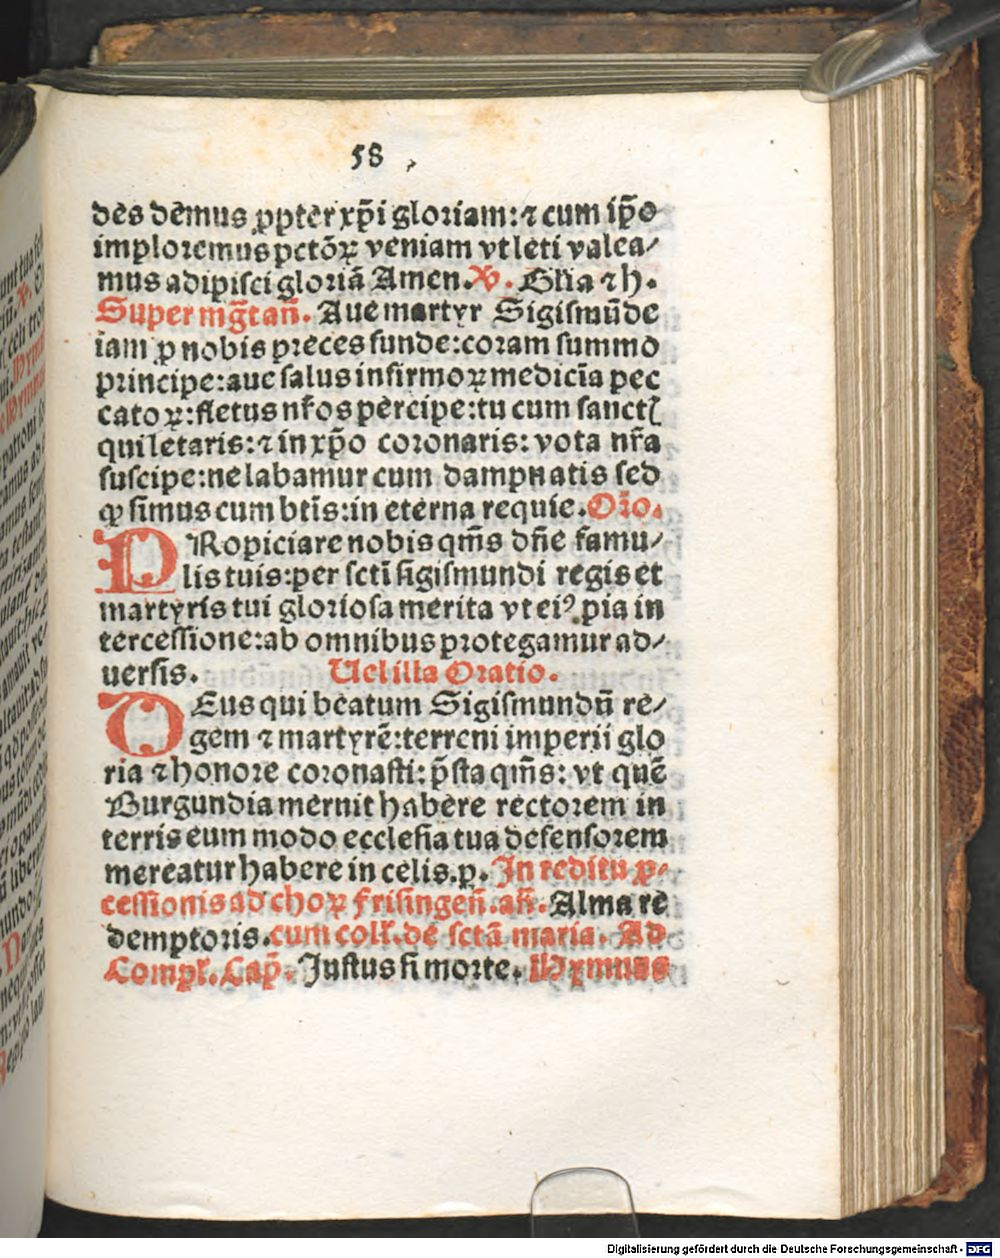 58
des demus ꝓpter xp̄i gloriam: ⁊ cum ip̄o
imploremus pctōꝝ veniam vt leti valea⸗
mus adipisci gloriā Amen. ℣. Gl̄ia ⁊ h.
Super mḡtan̄. Aue martyr Sigismūde
iam ꝓ nobis preces funde: coram summo
principe: aue salus infirmoꝝ medicīa pec
catoꝝ: fletus nr̄os percipe: tu cum sanctꝭ
qui letaris: ⁊ in xp̄o coronaris: vota nr̄a
suscipe: ne labamur cum dampnatis sed
ꝙ simus cum btīs: in eterna requie. Or̄o.
PRopiciare nobis qm̄s dn̄e famu⸗
lis tuis: per sctī sigismundi regis et
martyris tui gloriosa merita vt eiꝰ pia in
tercessione: ab omnibus protegamur ad⸗
uersis. Uel illa Oratio.
DEus qui beatum Sigismundū re⸗
gem ⁊ martyrē: terreni imperii glo
ria ⁊ honore coronasti: p̄sta qm̄s: vt quē
Burgundia mernit habere rectorem in
terris eum modo ecclesia tua defensorem
mereatur habere in celis. p. In reditu ꝓ⸗
cessionis ad choꝝ frisingen̄. an̄. Alma re
demptoris. cum coll̄. de sctā maria. Ad
Compl̄. Cap̄. Justus si morte. Hymnus
Digitalisierung gefördert durch die Deutsche Forschungsgemeinschaft - DFG